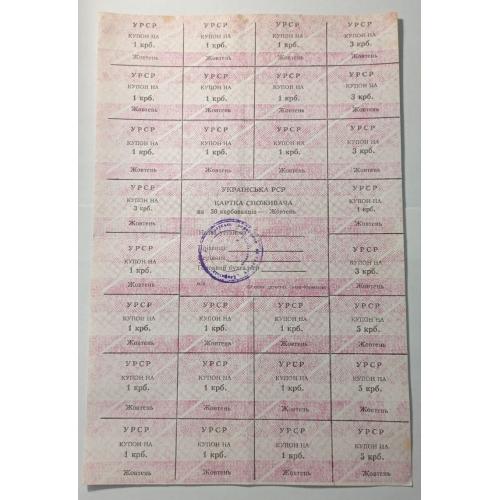 УРСР УРСР УРСР УРСР
КУПОН НА КУПОН НА КУПОН НА КУПОН НА
1 крб. 1 крб. 1 крб. 3 крб.
Жовтень Жовтень Жовтень Жовтень
УРСР УРСР УРСР УРСР
КУПОН НА КУПОН НА КУПОН НА КУПОН НА
1 крб. 1 крб. 1 крб. 3 крб.
Жовтень Жовтень Жовтень Жовтень
УРСР УРСР УРСР УРСР
КУПОН НА КУПОН НА КУПОН НА КУПОН НА
1 крб. 1 крб. 1 крб. 3 крб.
Жовтень Жовтень Жовтень Жовтень
УРСР
КУПОН НА
3 крб.
Жовтень
УКРАЇНСЬКА РСР
КАРТКА СПОЖИВАЧА
на 50 карбованців — Жовтень
Назва установи
Прізвище
Керівник
Головний бухгалтер
УРСР
КУПОН НА
1 крб.
Жовтень
УРСР
КУПОН НА
1 крб.
Жовтень
УРСР
КУПОН НА
3 крб.
Жовтень
УРСР УРСР УРСР УРСР
КУПОН НА КУПОН НА КУПОН НА КУПОН НА
1 крб. 1 крб. 1 крб. 5 крб.
Жовтень Жовтень Жовтень Жовтень
УРСР УРСР УРСР УРСР
КУПОН НА КУПОН НА КУПОН НА КУПОН НА
1 крб. 1 крб. 1 крб. 5 крб.
Жовтень Жовтень Жовтень Жовтень
УРСР УРСР УРСР УРСР
КУПОН НА КУПОН НА КУПОН НА КУПОН НА
1 крб. 1 крб. 1 крб. 5 крб.
Жовтень Жовтень Жовтень Жовтень